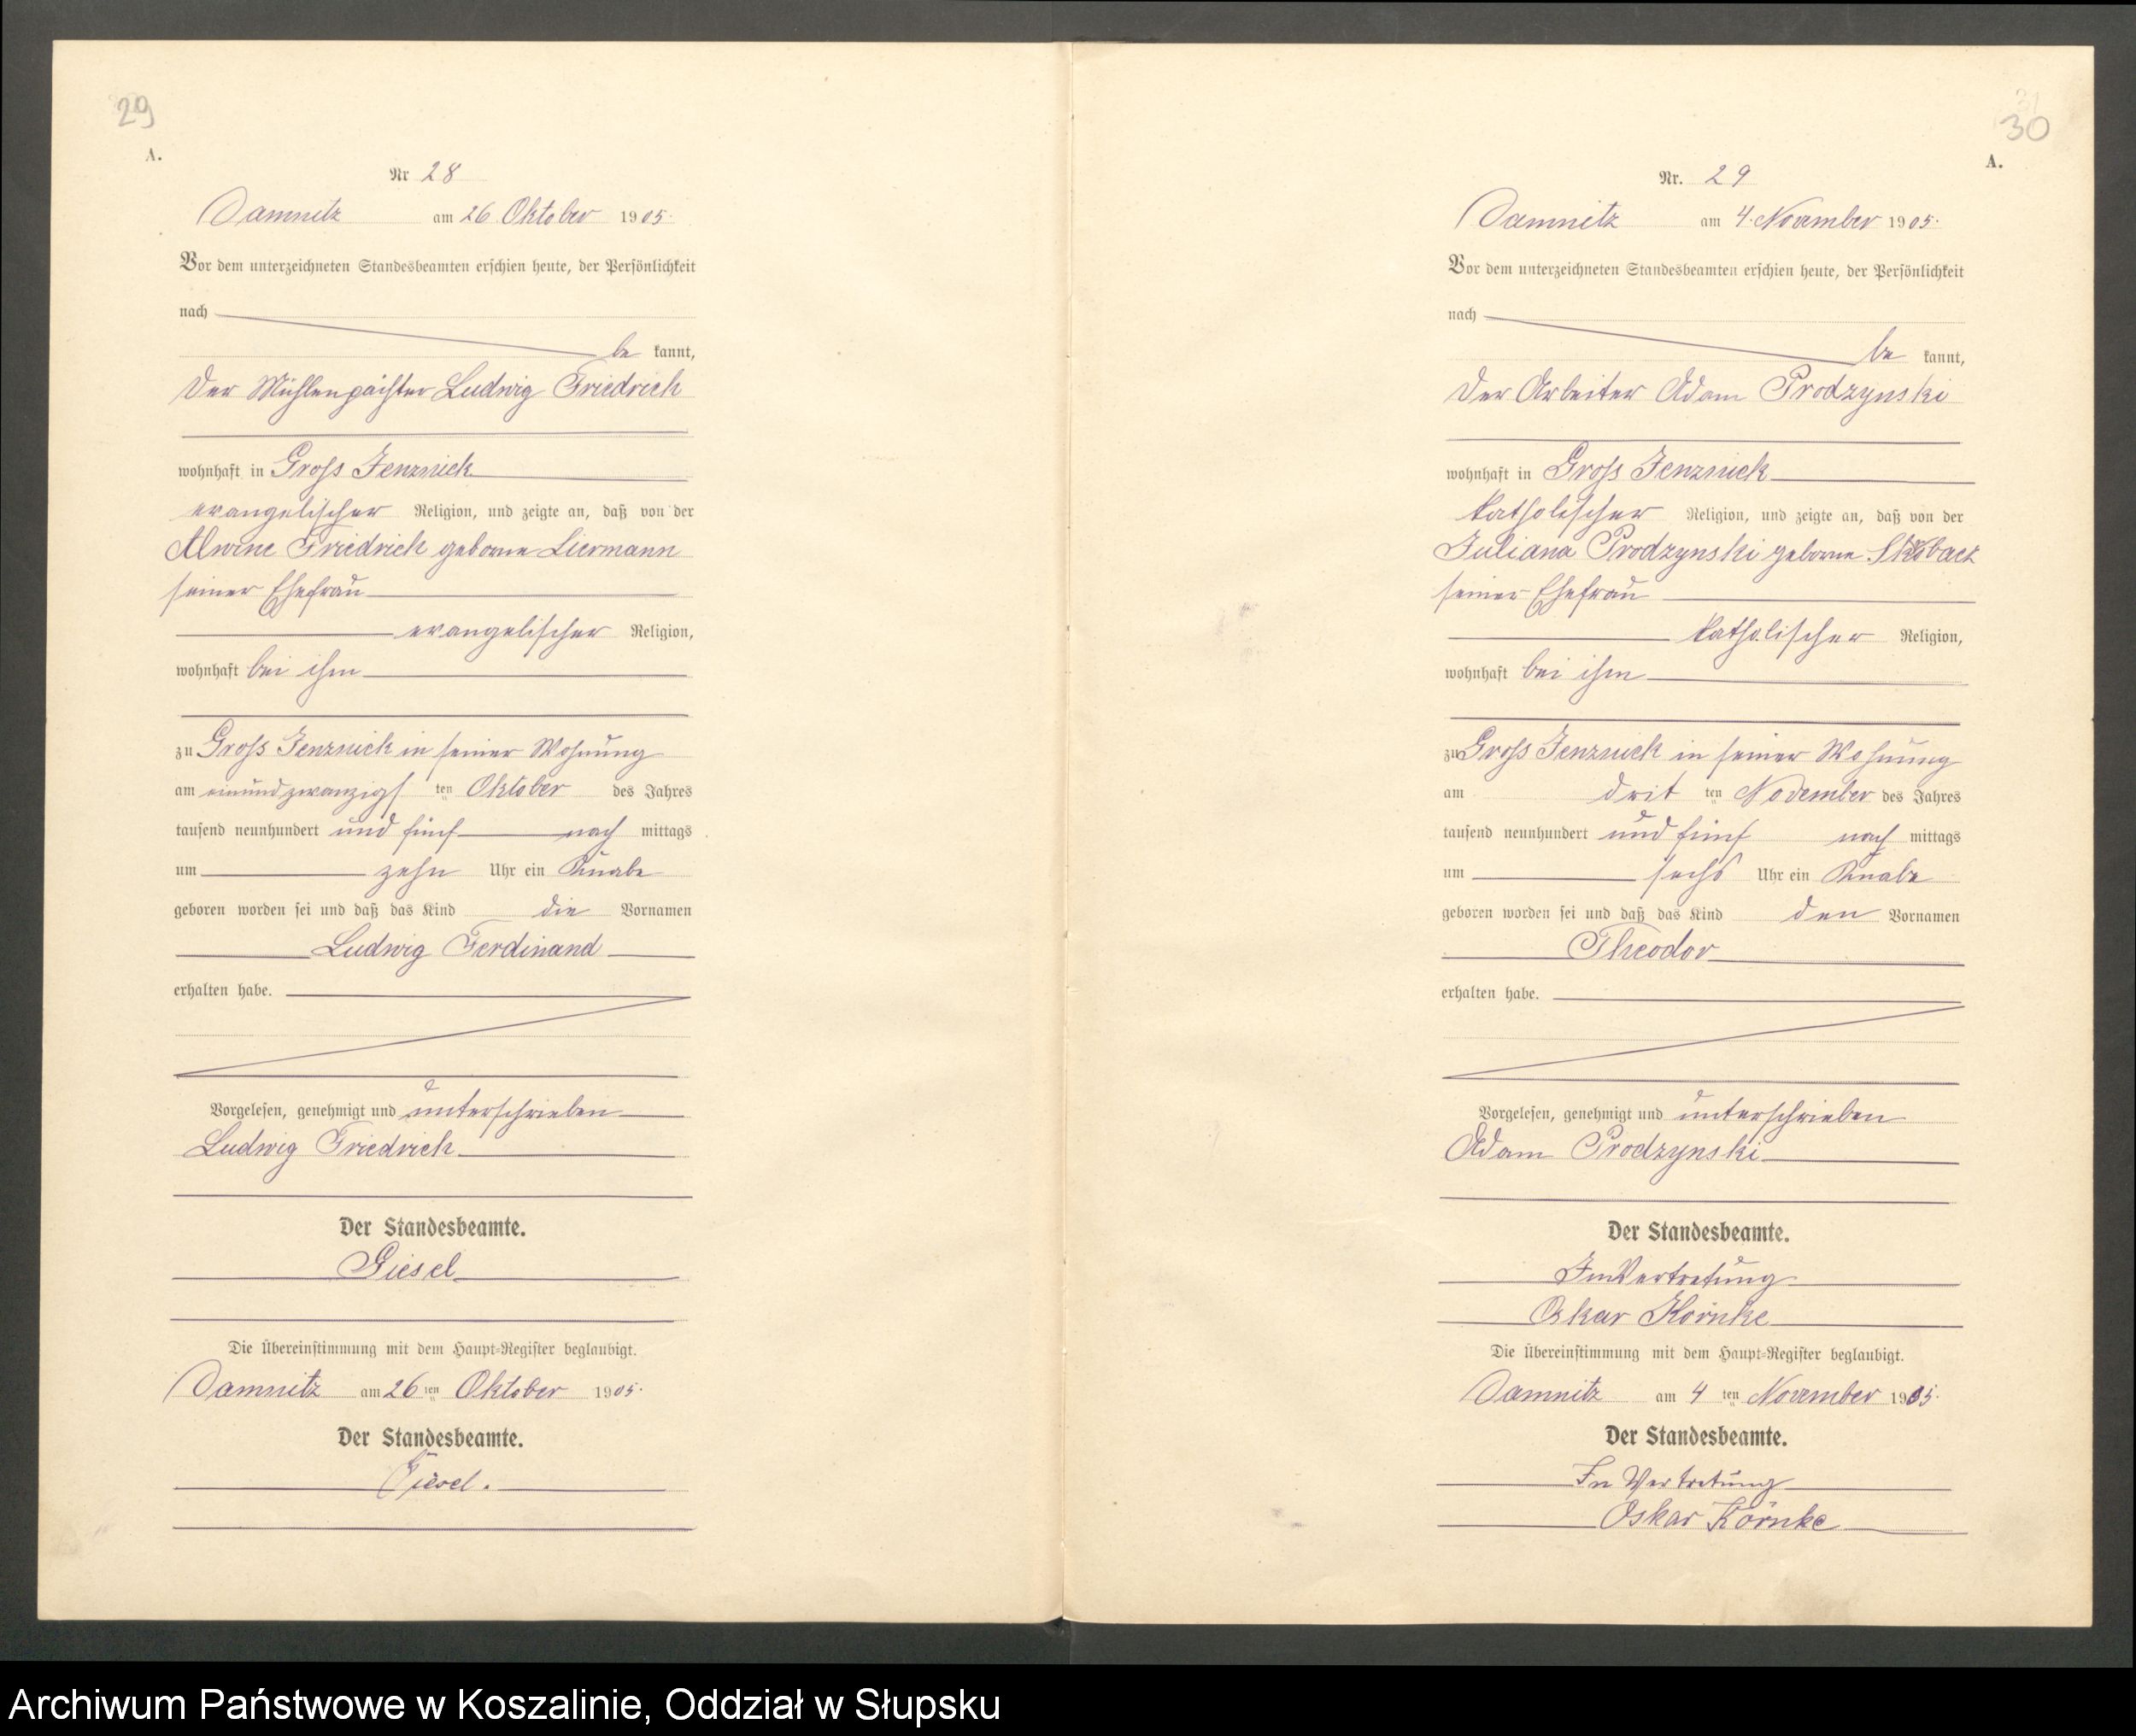 29
A.
Nr 28
Damnitz am 26 Oktober 1905.
Vor dem unterzeichneten Standesbeamten erschien heute, der Persönlichkeit
nach
be kannt,
der Mühlenpächter Ludwig Friedrich
wohnhaft in Gross Jenznick
evangelischer Religion, und zeigte an, daß von der
Alwine Friedrich geborne Liermann
seiner Ehefrau
evangelischer Religion,
wohnhaft bei ihm
zu Gross Jenznick in seiner Wohnung
am einundzwanzigs ten Oktober des Jahres
tausend neunhundert und fünf nach mittags
um zehn Uhr ein Knabe
geboren worden sei und daß das Kind die Vornamen
Ludwig Ferdinand
erhalten habe.
Vorgelesen, genehmigt und unterschrieben
Ludwig Friedrich
Der Standesbeamte.
Giesel
Die Übereinstimmung mit dem Haupt-Register beglaubigt.
Damnitz am 26 ten Oktober 1905.
Der Standesbeamte.
Giesel.
30
A.
Nr. 29
Damnitz am 4. November 1905.
Vor dem unterzeichneten Standesbeamten erschien heute, der Persönlichkeit
nach
be kannt,
der Arbeiter Adam Prodzynski
wohnhaft in Gross Jenznick
katholischer Religion, und zeigte an, daß von der
Juliana Prodzynski geborne
seiner Ehefrau
katholischer Religion,
wohnhaft bei ihm
zu Gross Jenznick in seiner Wohnung
am drit ten November des Jahres
tausend neunhundert und fünf nach mittags
um sechs Uhr ein Knabe
geboren worden sei und daß das Kind den Vornamen
Theodor
erhalten habe.
Vorgelesen, genehmigt und unterschrieben
Adam Prodzynski
Der Standesbeamte.
In Vertretung
Oskar Körnke
Die Übereinstimmung mit dem Haupt-Register beglaubigt.
Damnitz am 4 ten November 1905.
Der Standesbeamte.
In Vertretung
Oskar Körnke
Archiwum Państwowe w Koszalinie, Oddział w Słupsku